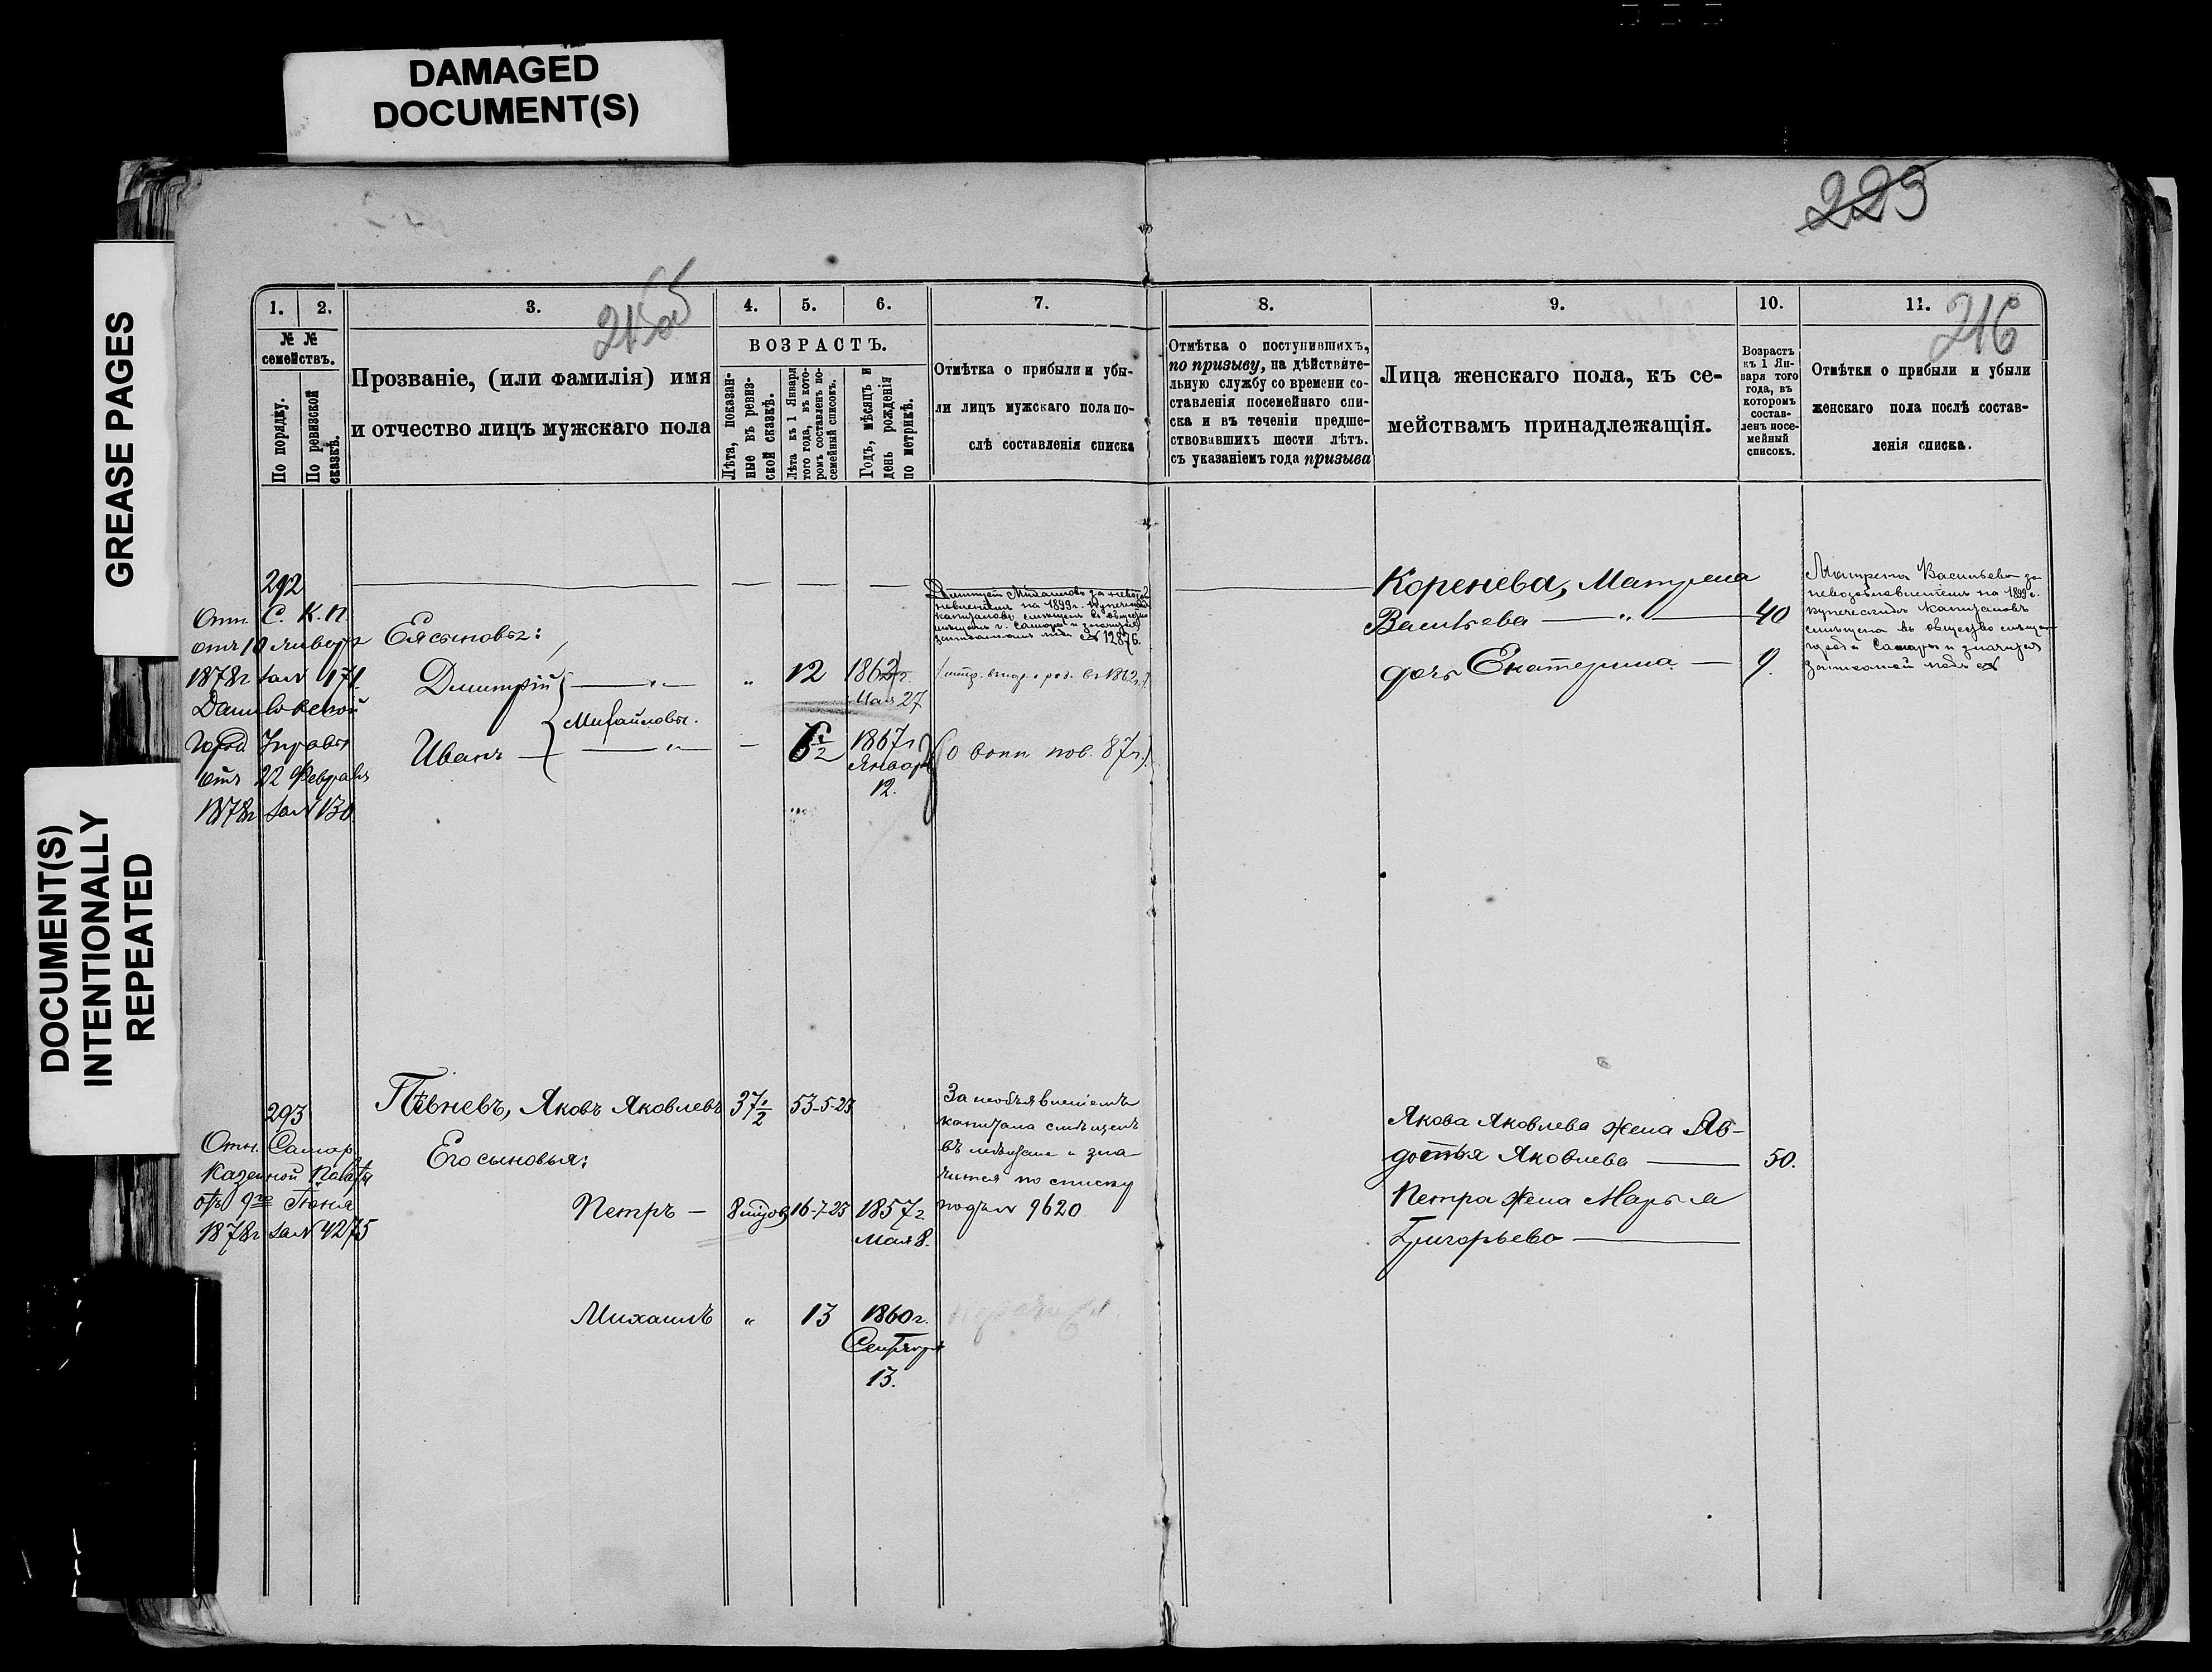 DAMAGED
DOCUMENT(S)
GREASE PAGES
DOCUMENT(S)
INTENTIONALLY
REPEATED
223
216
1.
2.
3.
4.
5.
6.
7.
8.
9.
10.
11.
№ №
семействъ.
По порядку.
По ревизской
сказкѣ.
Прозваніе, (или фамилія) имя
и отчество лицъ мужскаго пола
ВОЗРАСТЪ.
Лѣта, показан-
ные въ ревиз-
ской сказкѣ.
Лѣта къ 1 Января
того года, въ кото-
ромъ составленъ по-
семейный списокъ.
Годъ, мѣсяцъ и
день рожденія
по метрикѣ.
Отмѣтка о прибыли и убы-
ли лицъ мужскаго пола по-
слѣ составленія списка
Отмѣтка о поступившихъ,
по призыву, на дѣйствите-
льную службу со времени со-
ставленія посемейнаго спи-
ска и въ теченіи предше-
ствовавшихъ шести лѣтъ.
съ указаніемъ года призыва
Лица женскаго пола, къ се-
мействамъ принадлежащія.
Возрастъ
къ 1 Ян-
варя того
года, въ
которомъ
состав-
ленъ посе-
мейный
списокъ.
Отмѣтки о прибыли и убыли
женскаго пола послѣ состав-
ленія списка.
292
Отн. С. К. П.
отъ 10 января
1878г за № 171.
Город Управы
отъ 22 Февраля
1878г за № 130
Ея сыновья:
Дмитрій — " —
" 12 1862г.
Мая 27
Михайловы.
Иванъ — " —
— 6 1/2 1867г.
Января
12.
Дмитрій Михайловъ за невозоб
новленіемъ на 1899г. купеческ
капиталовъ смѣщенъ въ общество
мѣщанъ г. Самары и значится
подъ № 12876.
(о воин. пов. 87г.)
Коренева, Матрена
Васильева — " — 40
дочь Екатерина — 9.
Матрена Васильева за
невозобновленіемъ на 1899г.
купеческихъ капиталовъ
смѣщена въ общество мѣщан
города Самары и значится
подъ №
293
Отн. Самар.
Казенной Палаты
отъ 9го Іюня
1878г за № 4275
Пѣвневъ, Яковъ Яковлевъ 37 1/2 53-5-25
Его сыновья:
Петръ — 16-7-25 1857г.
Мая 8.
Михаилъ " 13 1860г.
Сентября
13.
За необъявленіемъ
капитала смѣщенъ
въ мѣщане и зна-
чится по списку
подъ № 9620
Якова Яковлева жена Ав-
дотья Яковлева — 50.
Петра жена Марья
Григорьева —